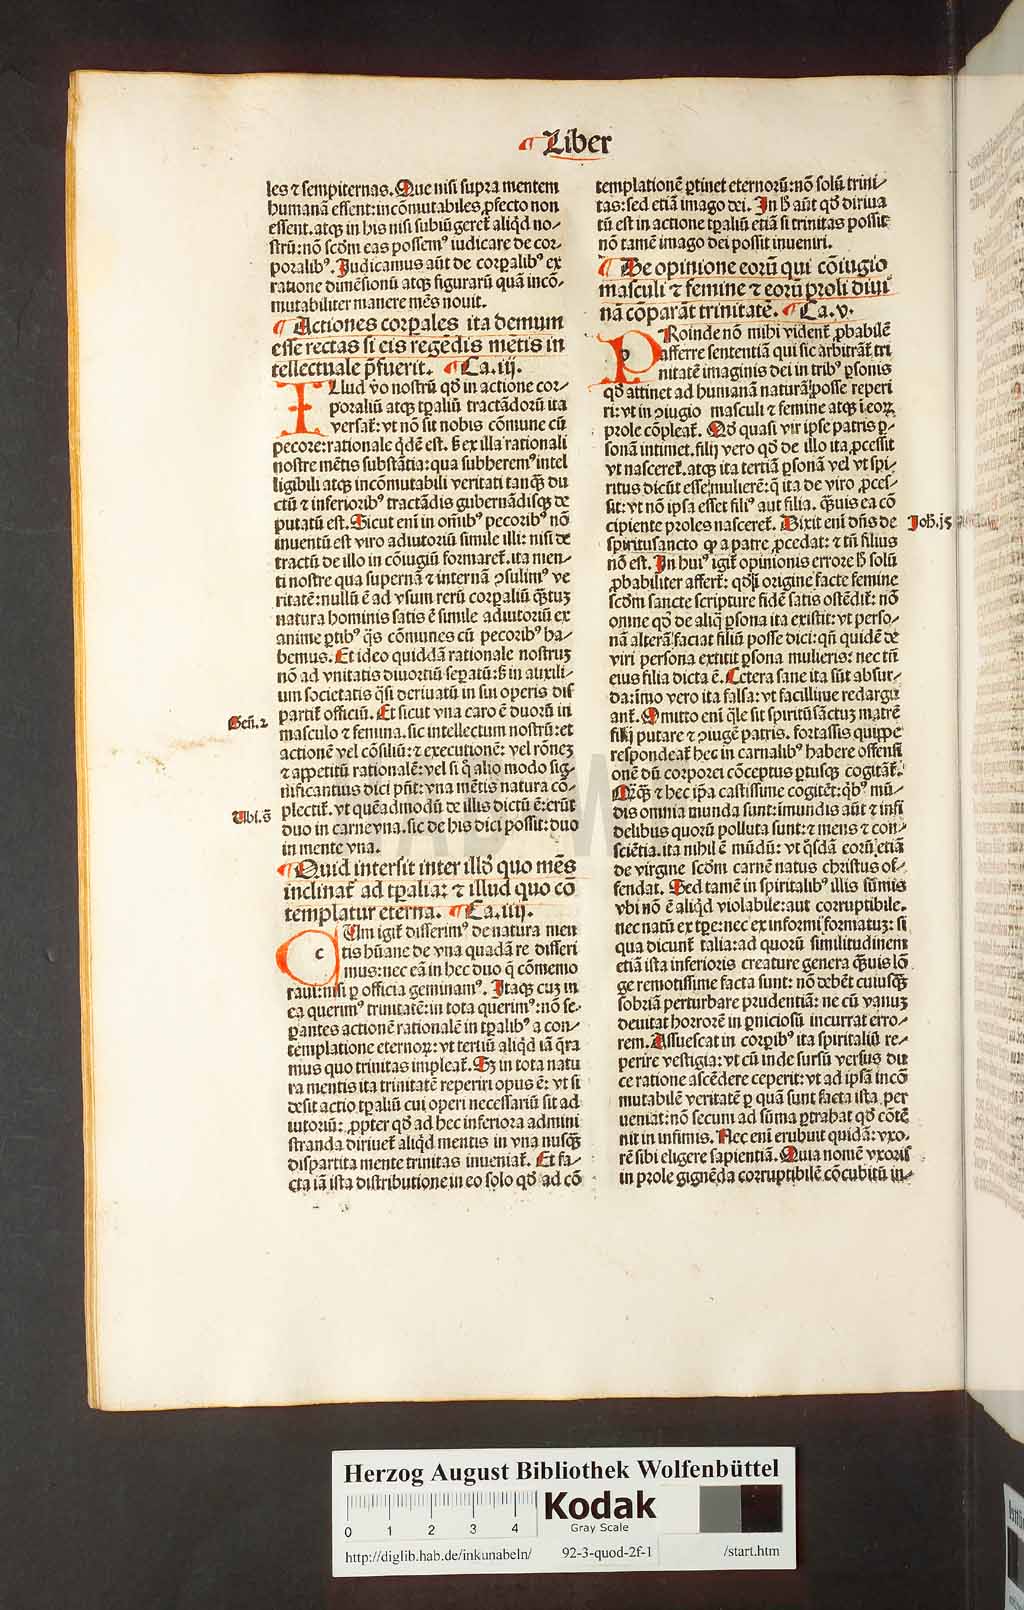 ¶ Liber
les ⁊ sempiternas. Que nisi supra mentem
humanā essent: incōmutabiles ꝓfecto non
essent. atqꝫ in his nisi subiūgeret̄ aliqd no-
strū: nō scd̄m eas possemꝰ iudicare de cor-
poralibꝰ. Judicamus aūt de corꝑalibꝰ ex
ratione dimēsionū atqꝫ figurarū quā incō-
mutabiliter manere mēs nouit.
¶ Actiones corꝑales ita demum
esse rectas si eis regēdis mētis in
tellectuale p̄fuerit. ¶ Ca. iij.
Illud v̄o nostrū qd̄ in actione cor-
poraliū atqꝫ tꝑaliū tractādorū ita
versat̄: vt nō sit nobis cōmune cū
pecore: rationale qdē est. sꝫ ex illa rationali
nostre mētis substātia: qua subheremꝰ intel
ligibili atqꝫ incōmutabili veritati tanqꝫ du
ctū ⁊ inferioribꝰ tractādis gubernādisqꝫ de
putatū est. Sicut eni in oīnibꝰ pecoribꝰ nō
inuentū est viro adiutoriū simile illi: nisi de
tractū de illo in cōiugiū formaret̄. ita men-
ti nostre qua supernā ⁊ internā ꝯsulimꝰ ve
ritatē: nullū ē ad vsum rerū corꝑaliū qꝫtuꝫ
natura hominis satis ē simile adiutoriū ex
anime ꝑtibꝰ qs cōmunes cū pecoribꝰ ha-
bemus. Et ideo quiddā rationale nostruꝫ
nō ad vnitatis diuortiū seꝑatū: sꝫ in auxili-
um societatis qsi deriuatū in sui operis dis
partit̄ officiū. Et sicut vna caro ē duorū in
masculo ⁊ femina. sic intellectum nostrū: et
actionē vel cōsiliū: ⁊ executionē: vel rōneꝫ
⁊ appetitū rationalē: vel si q̄ alio modo sig-
nificantius dici pn̄t: vna mētis natura cō-
plectit̄. vt quēadmodū de illis dictū ē: erūt
duo in carne vna. sic de his dici possit: duo
in mente vna.
Gen̄. 2
Vbi. s̄
¶ Quid intersit inter illd̄ quo mēs
inclinat̄ ad tꝑalia: ⁊ illud quo cō
templatur eterna. ¶ Ca. iiij.
Cum igit̄ disserimꝰ de natura men
tis hūane de vna quadā re disseri
mus: nec eā in hec duo q̄ cōmemo
raui: nisi ꝑ officia geminamꝰ. Itaqꝫ cuꝫ in
ea querimꝰ trinitatē: in tota querimꝰ: nō se-
ꝑantes actionē rationalē in tꝑalibꝰ a con-
templatione eternoꝝ: vt tertiū aliqd iā qra
mus quo trinitas impleat̄. Sꝫ in tota natu
ra mentis ita trinitatē reperiri opus ē: vt si
desit actio tꝑaliū cui operi necessariū sit ad
iutoriū: ꝓpter qd̄ ad hec inferiora admini
stranda diriuet̄ aliqd mentis in vna nusqꝫ
dispartita mente trinitas inueniat̄. Et fa-
cta iā ista distributione in eo solo qd̄ ad cō
templationē ꝑtinet eternorū: nō solū trini-
tas: sed etiā imago dei. In h̄ aūt qd̄ diriua
tū est in actione tꝑaliū etiā si trinitas possit
nō tamē imago dei possit inueniri.
¶ De opinione eorū qui cōiugio
masculi ⁊ femine ⁊ eorū proli diui
nā cōparāt trinitatē. ¶ Ca. v.
PRoinde nō mihi vident̄ ꝓbabilē
afferre sententiā qui sic arbitrāt̄ tri
nitatē imaginis dei in tribꝰ ꝑsonis
qd̄ attinet ad humanā naturā posse reperi
ri: vt in ꝯiugio masculi ⁊ femine atqꝫ ī eoꝝ
prole cōpleat̄. Qd̄ quasi vir ipse patris ꝑ-
sonā intimet. filij vero qd̄ de illo ita ꝓcessit
vt nasceret̄. atqꝫ ita tertiā ꝑsonā vel vt spi-
ritus dicūt esse mulierē: q̄ ita de viro ꝓces-
sit: vt nō ipsa esset filiꝰ aut filia. qꝫuis ea cō
cipiente proles nasceret̄. Dixit eni dn̄s de
spiritusancto ꝙ a patre ꝓcedat: ⁊ tn̄ filius
nō est. In huiꝰ igit̄ opinionis errore h̄ solū
ꝓbabiliter affert̄: qd̄ ī origine facte femine
scd̄m sancte scripture fidē satis ostēdit̄: nō
omne qd̄ de aliq ꝑsona ita existit: vt perso-
nā alterā faciat filiū posse dici: qn̄ quidē de
viri persona extitit ꝑsona mulieris: nec tn̄
eius filia dicta ē. Cetera sane ita sūt absur-
da: īmo vero ita falsa: vt facillime redargu
ant̄. Omitto eni qle sit spiritū sāctuꝫ matrē
filij putare ⁊ ꝯiugē patris. fortassis quippe
respondeat̄ hec in carnalibꝰ habere offensi
onē dū corporei cōceptus ꝑtusqꝫ cogitāt̄.
Qꝫqꝫ ⁊ hec ip̄a castissime cogitēt: qbꝰ mū-
dis omnia munda sunt: īmundis aūt ⁊ infi
delibus quorū polluta sunt: ⁊ mens ⁊ con-
sciētia. ita nihil ē mūdū: vt qsdā eorū etiā
de virgine scd̄m carnē natus christus of-
fendat. Sed tamē in spiritalibꝰ illis sūmis
vbi nō ē aliqd violabile: aut corruptibile.
nec natū ex tp̄e: nec ex informi formatuꝫ: si
qua dicunt̄ talia: ad quorū similitudinem
etiā ista inferioris creature genera qꝫuis lō
ge remotissime facta sunt: nō debēt cuiusqꝫ
sobriā perturbare prudentiā: ne cū vanuꝫ
deuitat horrorē in ꝑniciosū incurrat erro-
rem. Assuescat in corꝑibꝰ ita spiritaliū re-
perire vestigia: vt cū inde sursū versus du
ce ratione ascēdere ceperit: vt ad ipsā incō
mutabilē veritatē ꝑ quā sunt facta ista per
ueniat: nō secum ad sūma ꝑtrahat qd̄ cōtē
nit in infimis. Nec eni erubuit quidā: vxo-
rē sibi eligere sapientiā. Quia nomē vxoris
in prole gignēda corruptibilē cōcubitū in-
Joh. j5
Herzog August Bibliothek Wolfenbüttel
0 1 2 3 4
Kodak
Gray Scale
http://diglib.hab.de/inkunabeln/ 92-3-quod-2f-1 /start.htm